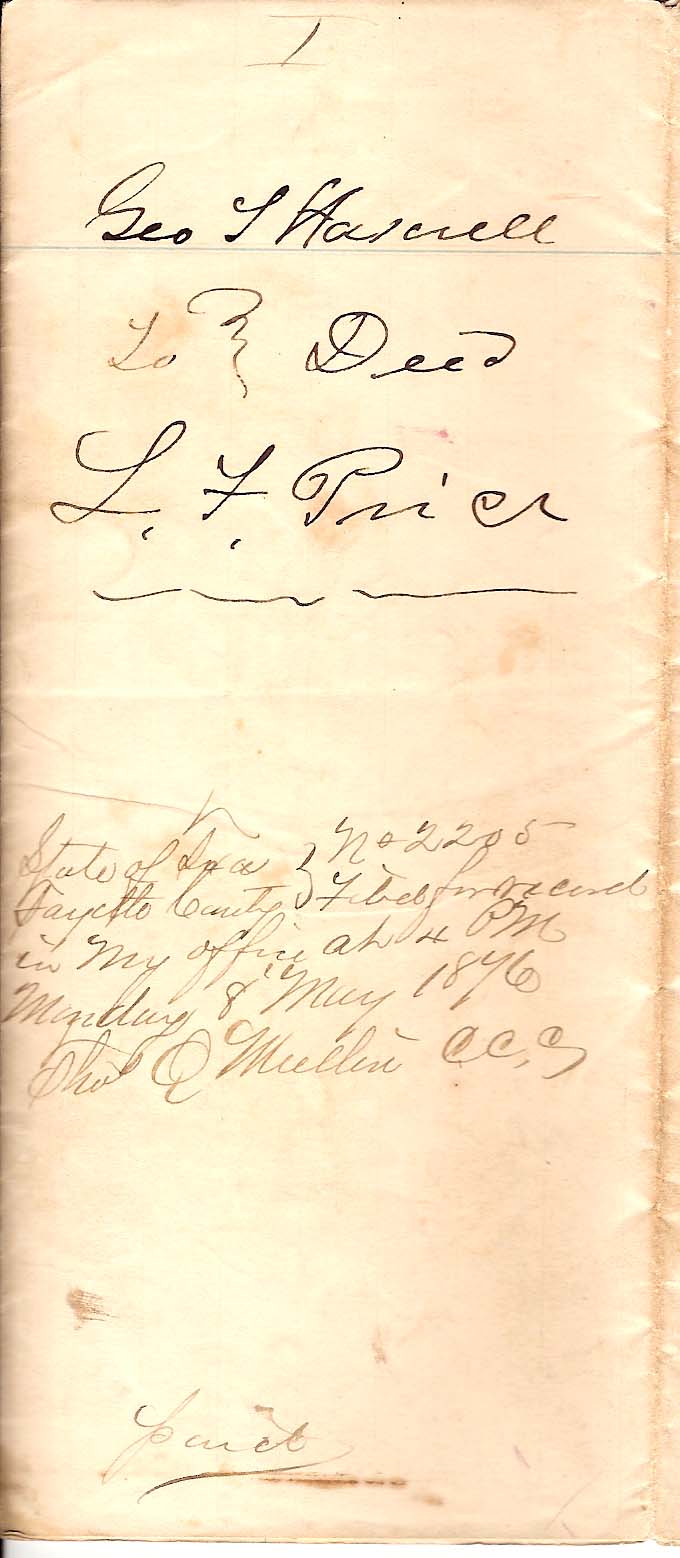 I
Geo T Hascrell
To } Deed
L. F. Price
State of Texas } No 2205
Fayette County } Filed for record
in My office at 4 PM
Monday 8 May 1876
Thos Q Mullin C C, C
paid